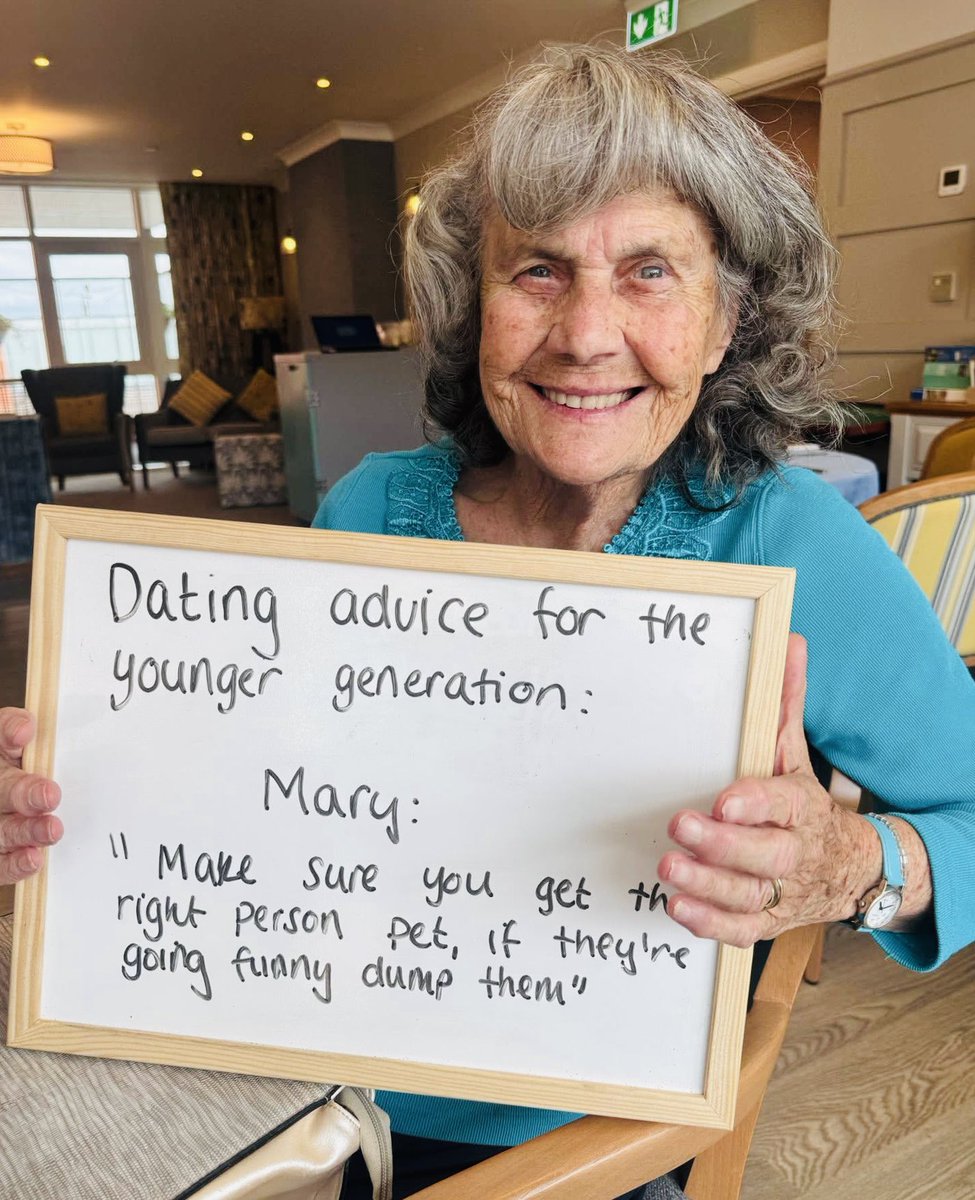 Dating advice for the
younger generation:
Mary:
"Make sure you get th
right person pet, if they're
going funny dump them"